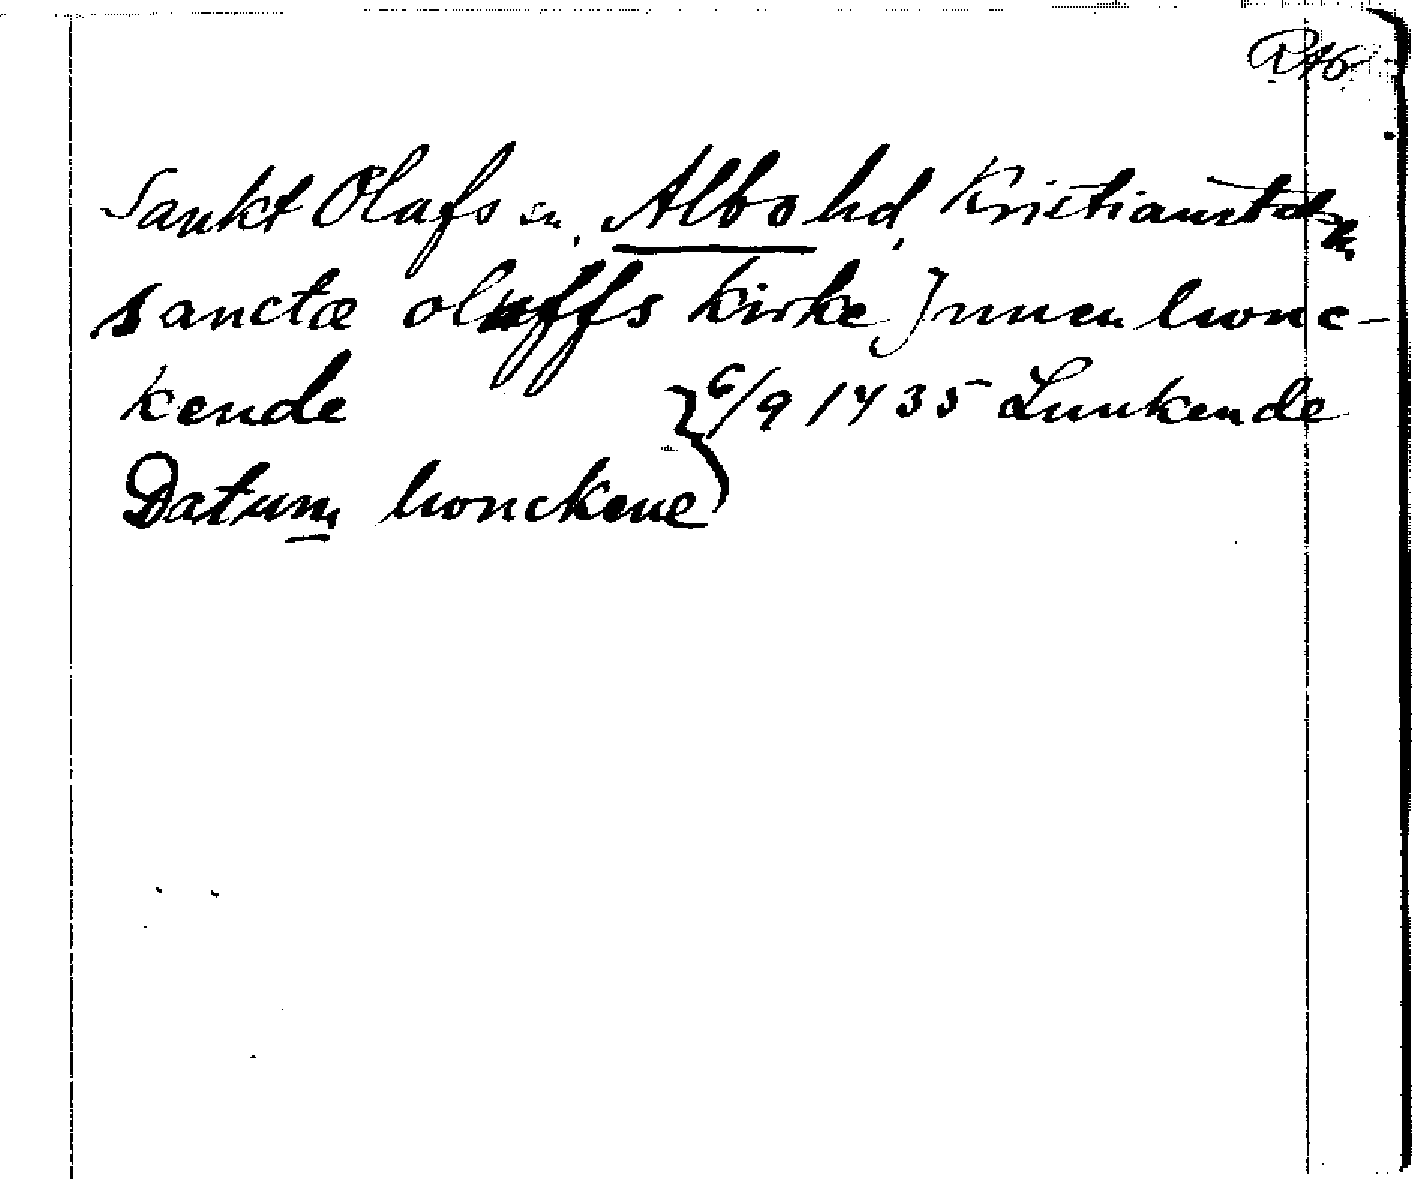 RAÖ
Sankt Olafs sn, Albo hd, Kristianstads l.
sanctæ oluffs kirke Jnnen lwnc-
kende
} 6/9 1435 Lunkende
Datum lwnckene